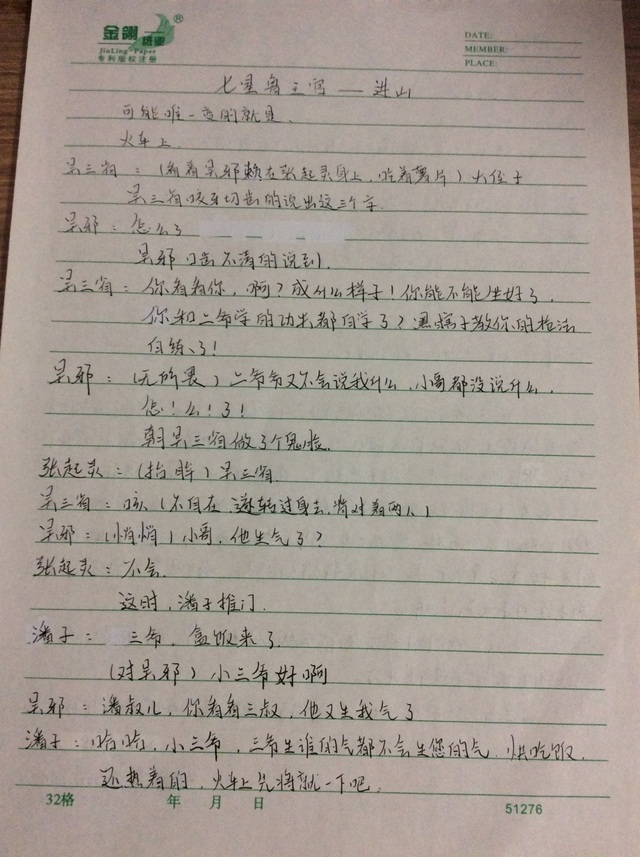 金翎纸业®
JinLing Paper
专利版权注册
DATE:
MEMBER:
PLACE:
七星鲁王宫——进山
可能唯一变的就是
火车上
吴三省:(看着吴邪赖在张起灵身上,吃着薯片)大侄子
吴三省咬牙切齿的说出这三个字
吴邪:怎么了
吴邪口齿不清的说到.
吴三省:你看看你,啊?成什么样子!你能不能坐好了.
你和二爷学的功夫都白学了?黑瞎子教你的枪法
白练了!
吴邪:(无所畏)二爷爷又不会说我什么,小哥都没说什么.
怎!么!了!
朝吴三省做了个鬼脸.
张起灵:(抬眸)吴三省.
吴三省:咳(不自在 转过身去,背对着两人)
吴邪:(悄悄)小哥,他生气了?
张起灵:不会.
这时,潘子推门.
潘子: 三爷,盒饭来了.
(对吴邪)小三爷好啊
吴邪:潘叔儿,你看看三叔,他又生我气了
潘子:哈哈,小三爷,三爷生谁的气都不会生您的气.快吃饭,
还热着的,火车上先将就一下吧.
32格
年 月 日
51276